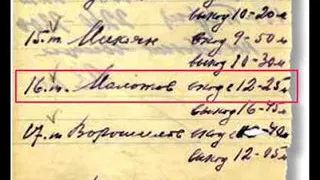 выход 10-20м
15.т. Микоян вход 9-50м
выход 10-30м
16.т. Молотов вход 12-25м
выход 16-45м
17.т Ворошилов вход -40м
выход 12-05м